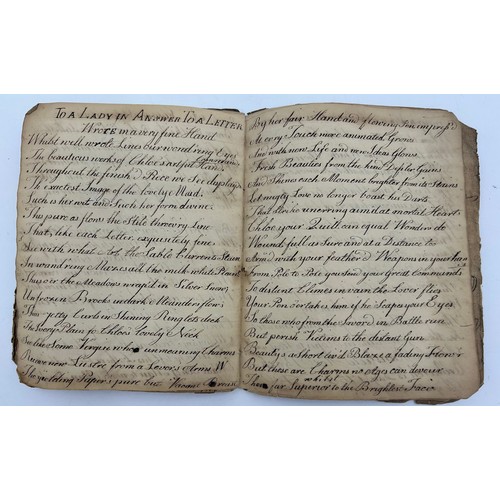 TO A LADY IN ANSWER TO A LETTER
Wrote in a very fine Hand
Whilst well wrote Lines our wond'ring Eyes Command
The beauteous work of Chloe's artful Hand
Throughout the finish'd Piece we See display'd
Th' exactest Image of the lovely Maid.
Such is her wit and Such her form divine
This pure as flows the Stile thro ev'ry Line
That, like each Letter, exquisitely fine
See with what Art the Sable Currents Stain
In wand'ring Mazes all the milk white Plain
Thus o'er the Meadows wrap'd in Silver Snow
Unfrozen Brooks in dark Meanders flow
Thus jetty Curls in Shining Ringlets deck
The Ivory Plain of Chloe's lovely Neck
So like Some Virgin whose unmeaning Charms
Receive new Lustre from a Lover's Arms
The yielding Paper's pure but Vacant Breast
By her fair Hand and flowing Pen impress'd
At ev'ry Touch more animated Grows
And with new Life and new Ideas Glows
Fresh Beauties from the kind Defiler Gains
And Shines each Moment brighter from its Stains
Let mighty Love no longer boast his Darts
That strike unerring aim'd at mortal Hearts
Chloe your Quill can equal Wonders do
Wound full as Sure and at a Distance too
Arm'd with your feather'd Weapons in your hand
From Pole to Pole you Send your Great Commands
To distant Climes in vain the Lover flies
Your Pen o'ertakes him if he 'Scapes your Eyes
So those who from the Sword in Battle run
But perish Victims to the distant Gun
Beauty's a Short liv'd Blaze a fading Flow'r
But these are Charms no Ages can devour
These far Superior to the Brightest Face